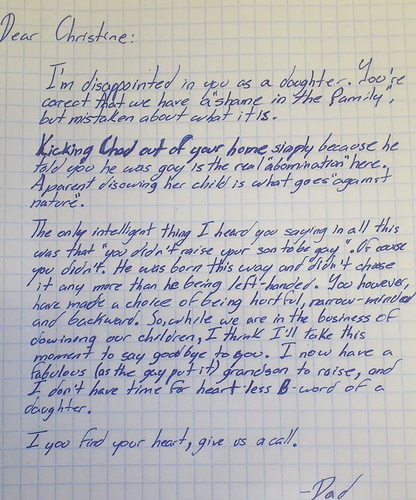 Dear Christine:
I'm disappointed in you as a daughter. You're
corect that we have a "shame in the family",
but mistaken about what it is.
Kicking Chad out of your home simply because he
told you he was gay is the real "abomination" here.
A parent disowning her child is what goes "against
nature".
The only intelligent thing I heard you saying in all this
was that "you didn't raise your son to be gay". Of cause
you didn't. He was born this way and didn't choose
it any more than he being left-handed. You however,
have made a choice of being hurtful, narrow-minded
and backward. So, while we are in the business of
disowning our children, I think I'll take this
moment to say goodbye to you. I now have a
fabulous (as the gay put it) grandson to raise, and
I don't have time for heart less B-word of a
daughter.
I you find your heart, give us a call.
-Dad